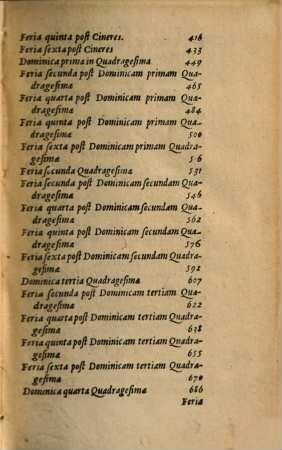 Feria quinta post Cineres. 416
Feria sexta post Cineres 433
Dominica prima in Quadragesima 449
Feria secunda post Dominicam primam Qua-
dragesimæ 465
Feria quarta post Dominicam primam Qua-
dragesimæ 484
Feria quinta post Dominicam primam Qua-
dragesimæ 500
Feria sexta post Dominicam primam Quadra-
gesimæ 516
Feria secunda Quadragesimæ 531
Feria secunda post Dominicam secundam Qua-
dragesimæ 546
Feria quarta post Dominicam secundam Qua-
dragesimæ 562
Feria quinta post Dominicam secundam Qua-
dragesimæ 576
Feria sexta post Dominicam secundam Quadra-
gesimæ 592
Dominica tertia Quadragesimæ 607
Feria secunda post Dominicam tertiam Qua-
dragesimæ 622
Feria quarta post Dominicam tertiam Quadra-
gesimæ 638
Feria quinta post Dominicam tertiam Quadra-
gesimæ 655
Feria sexta post Dominicam tertiam Quadra-
gesimæ 670
Dominica quarta Quadragesimæ 686
Feria